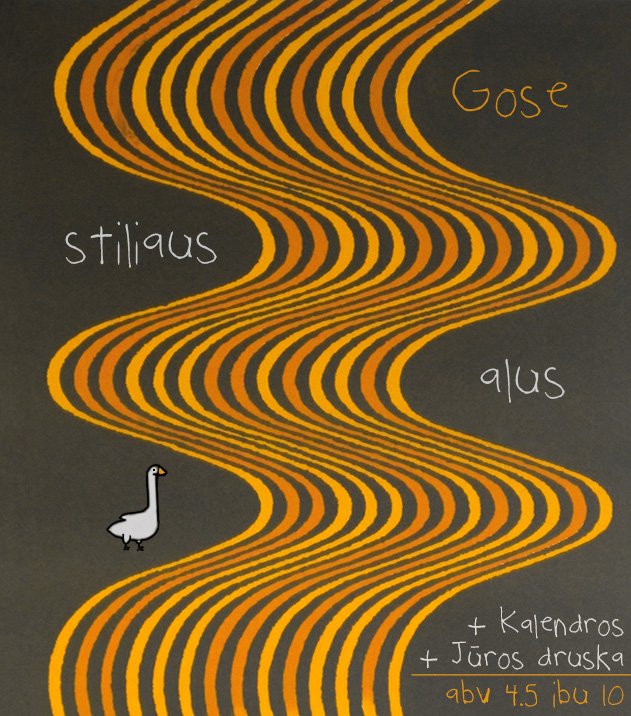 Gose
stiliaus
alus
+ Kalendros
+ Jūros druska
abv 4.5 ibu 10